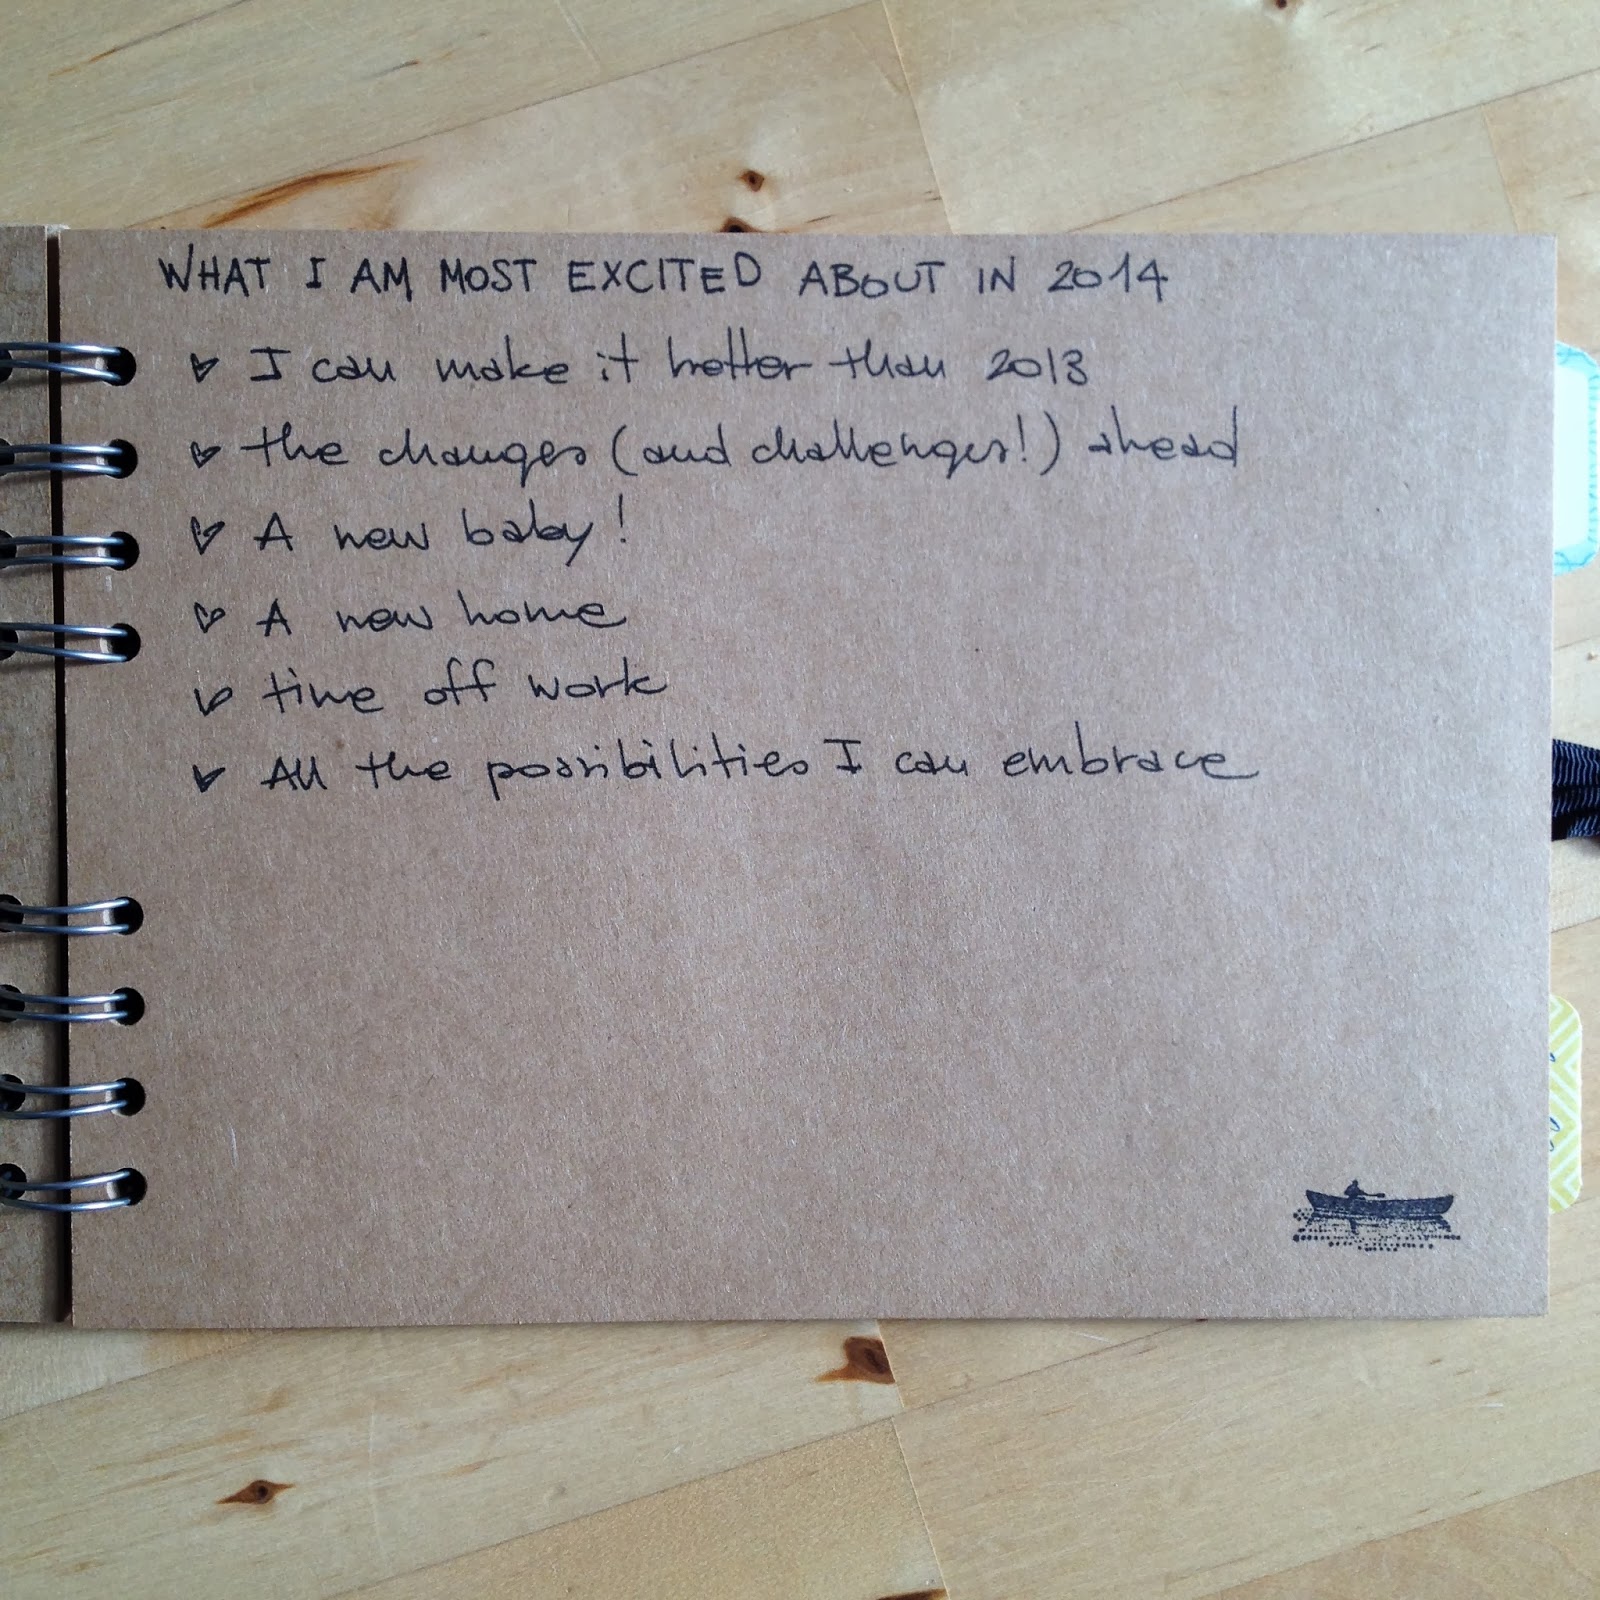 WHAT I AM MOST EXCITED ABOUT IN 2014
I can make it better than 2013
the changes (and challenges!) ahead
A new baby!
A new home
time off work
All the possibilities I can embrace